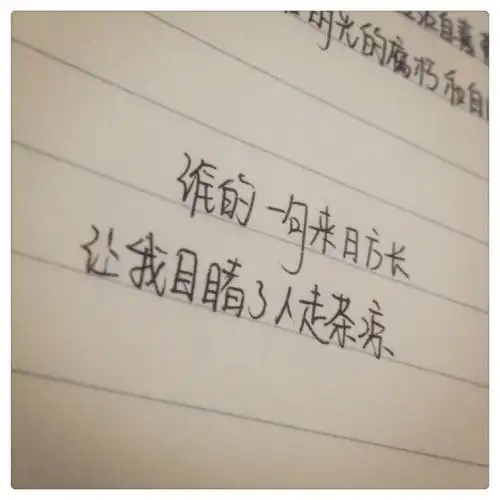 光的腐朽和自
谁的一句来日方长
让我目睹了人走茶凉、